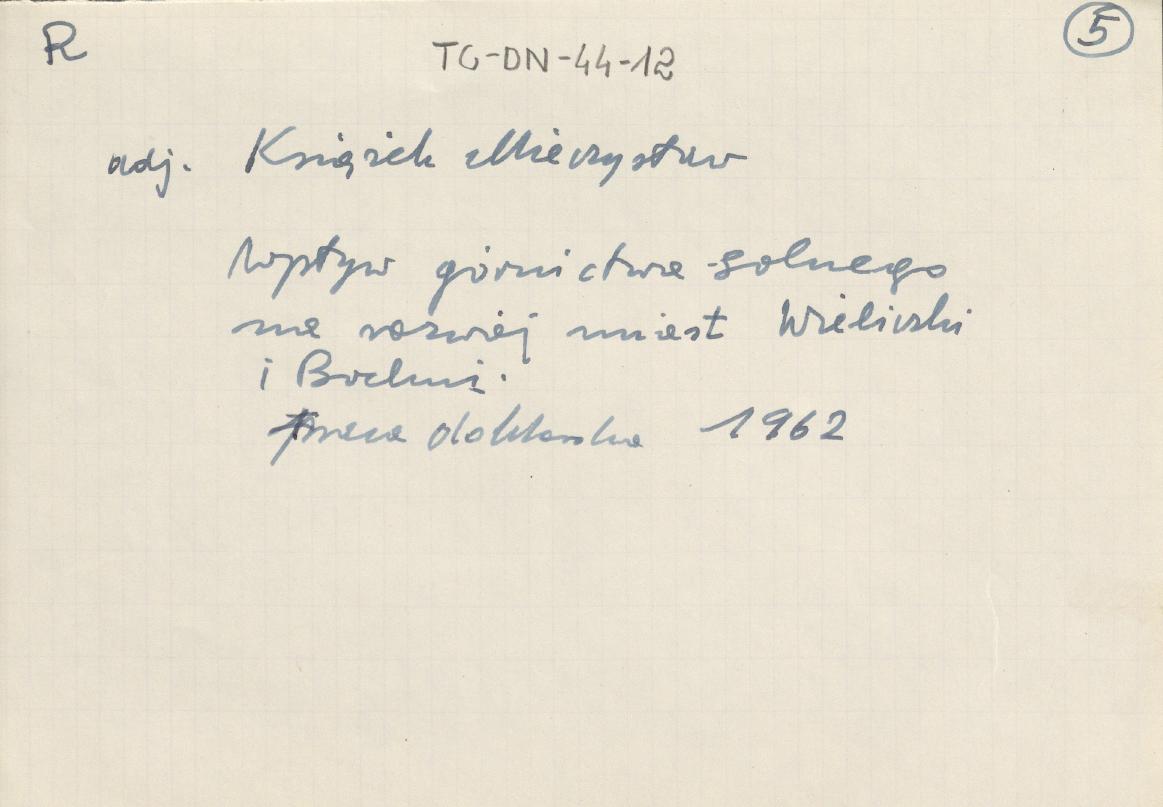 R
TG-DN-44-12
5
adj. Książek Mieczysław
Wpływ górnictwa solnego
na rozwój miast Wieliczki
i Bochni.
praca doktorska 1962